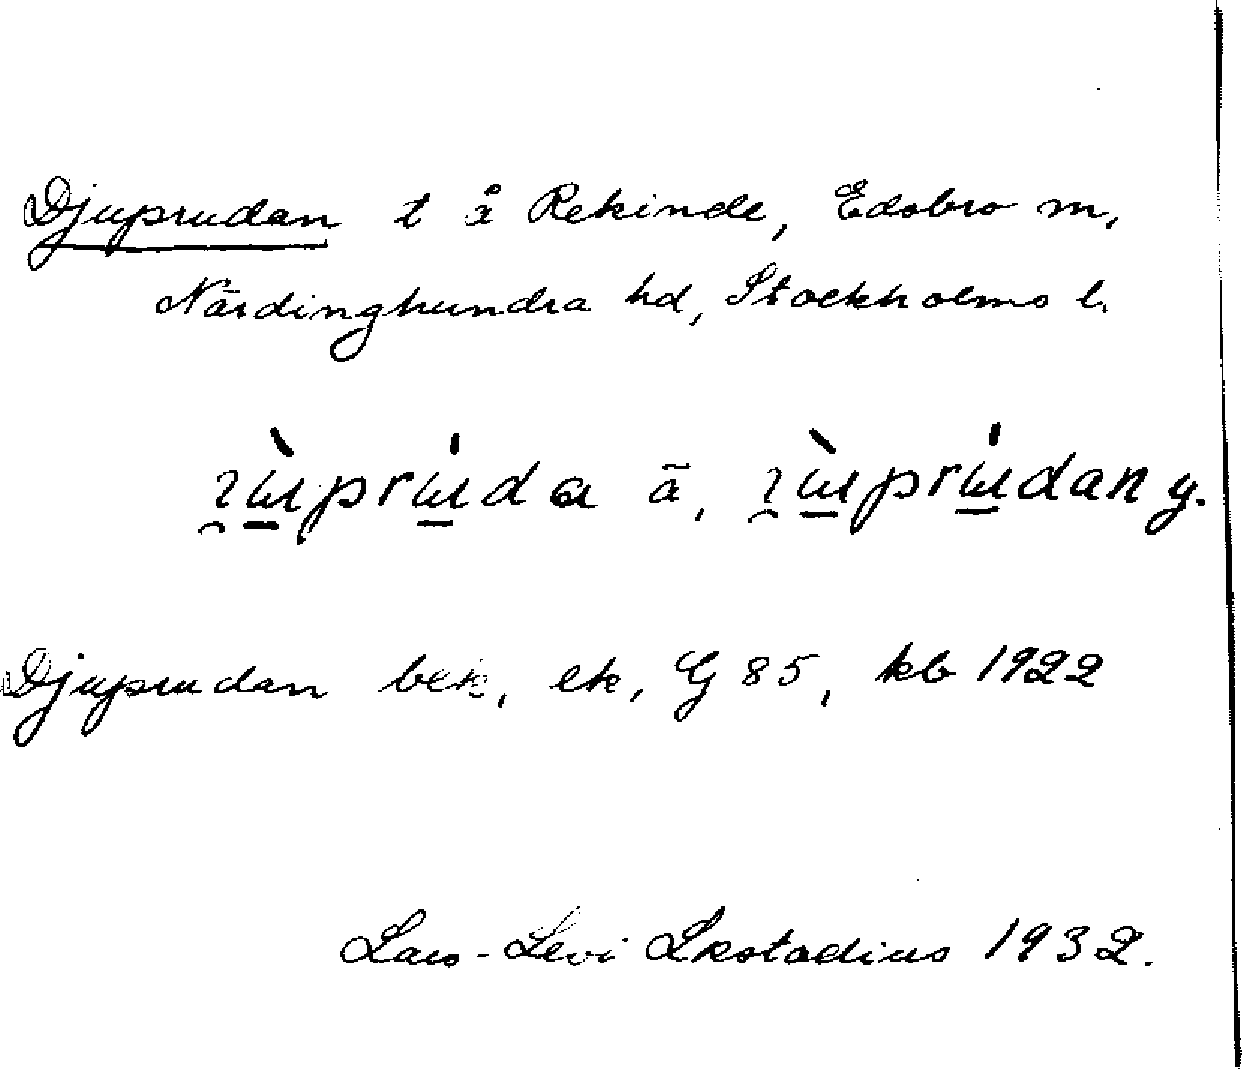 Djuprudan t å Rekinde, Edsbro sn,
Närdinghundra hd, Stockholms l.
ā, y.
Djuprudan bek, ek, G 85, kb 1922
Lars-Levi Læstadius 1932.